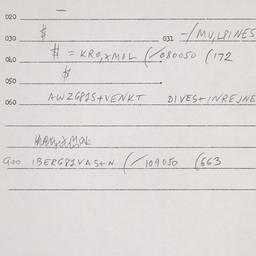 020 —
030 $ 031 -/MULPINES
$ = KRO,XMOL (/080050 (172
040 $
050
060 AWZGPIS+VENKT DIVES+INREJNE
900 IBERGPIVAS+N (/109050 (663